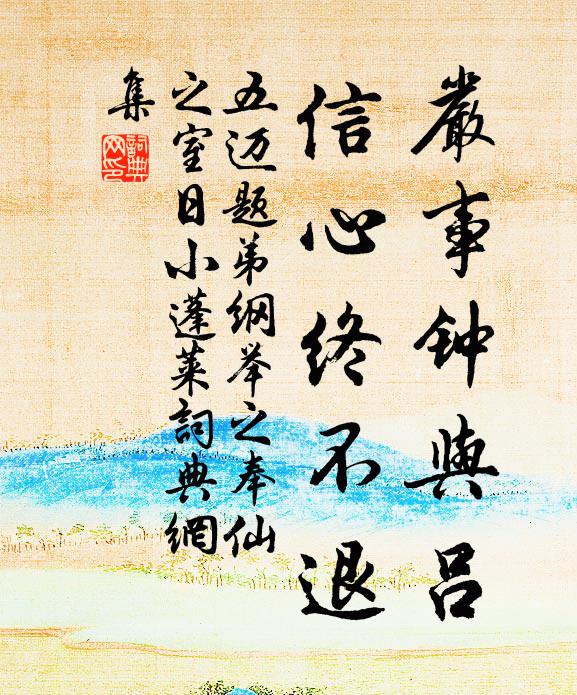 嚴事钟與吕
信心终不退
五迈题弟纲举之奉仙
之室日小蓬莱詞典網
集
詞典网印